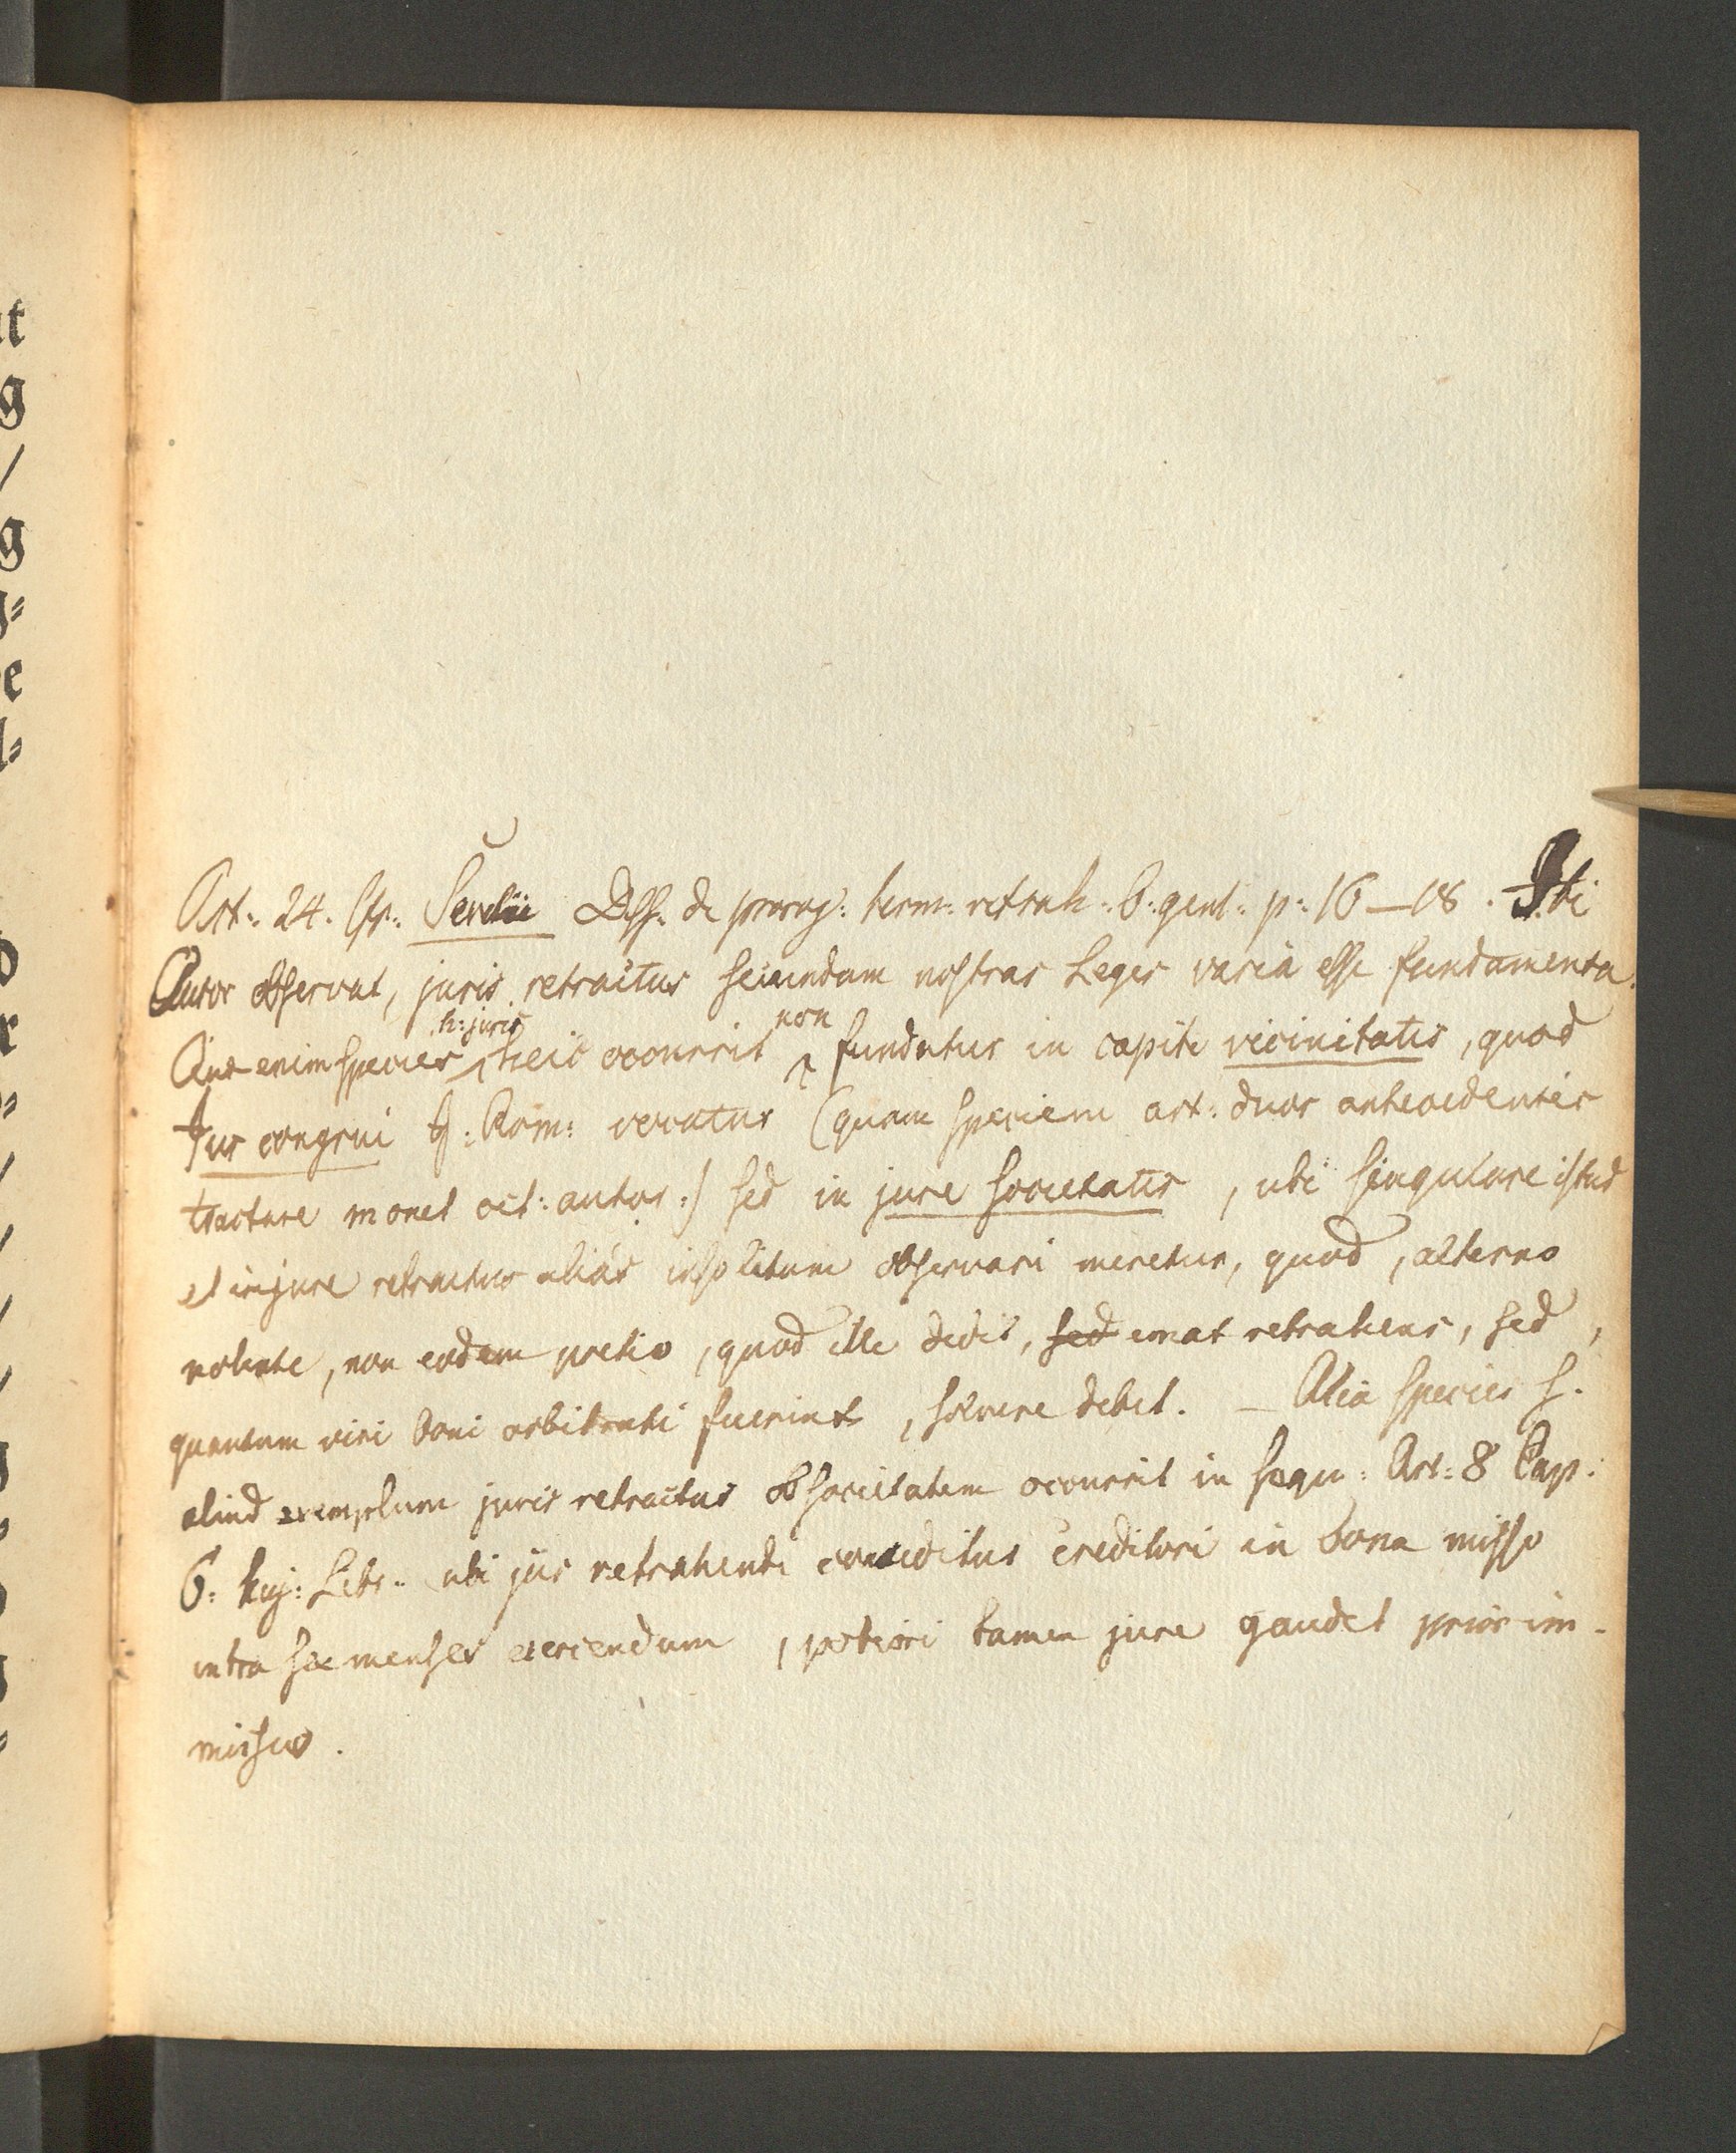 Art. 24. Cfr. Sevelii Diss. de prærog: term: retrah. b. gent: p: 16–18. Ibi
Autor observat, juris retractus secundum nostras Leges varia esse fundamenta.
Quæ enim species h: juris heic occurrit non fundatur in capite vicinitatis, quod
Jus congrui J: Rom: vocatur (quam speciem art: duos antecedentes
tractare monet cit: autor:) sed in jure societatis, ubi singulare istud
et in jure retractus aliàs insolitum observari meretur, quod, alterno
nolente, non eodem pretio, quod ille dedit, sed emat retrahens, sed,
quantum viri boni arbitrati fuerint, solvere debet. – Alia species s.
aliud exemplum juris retractus ob societatem occurrit in sequ: Art: 8 Cap:
6: huj: Libr: ubi jus retrahendi conceditur creditori in bona misso
intra sex menses exercendum, potiori tamen jure gaudet prior im-
missus.